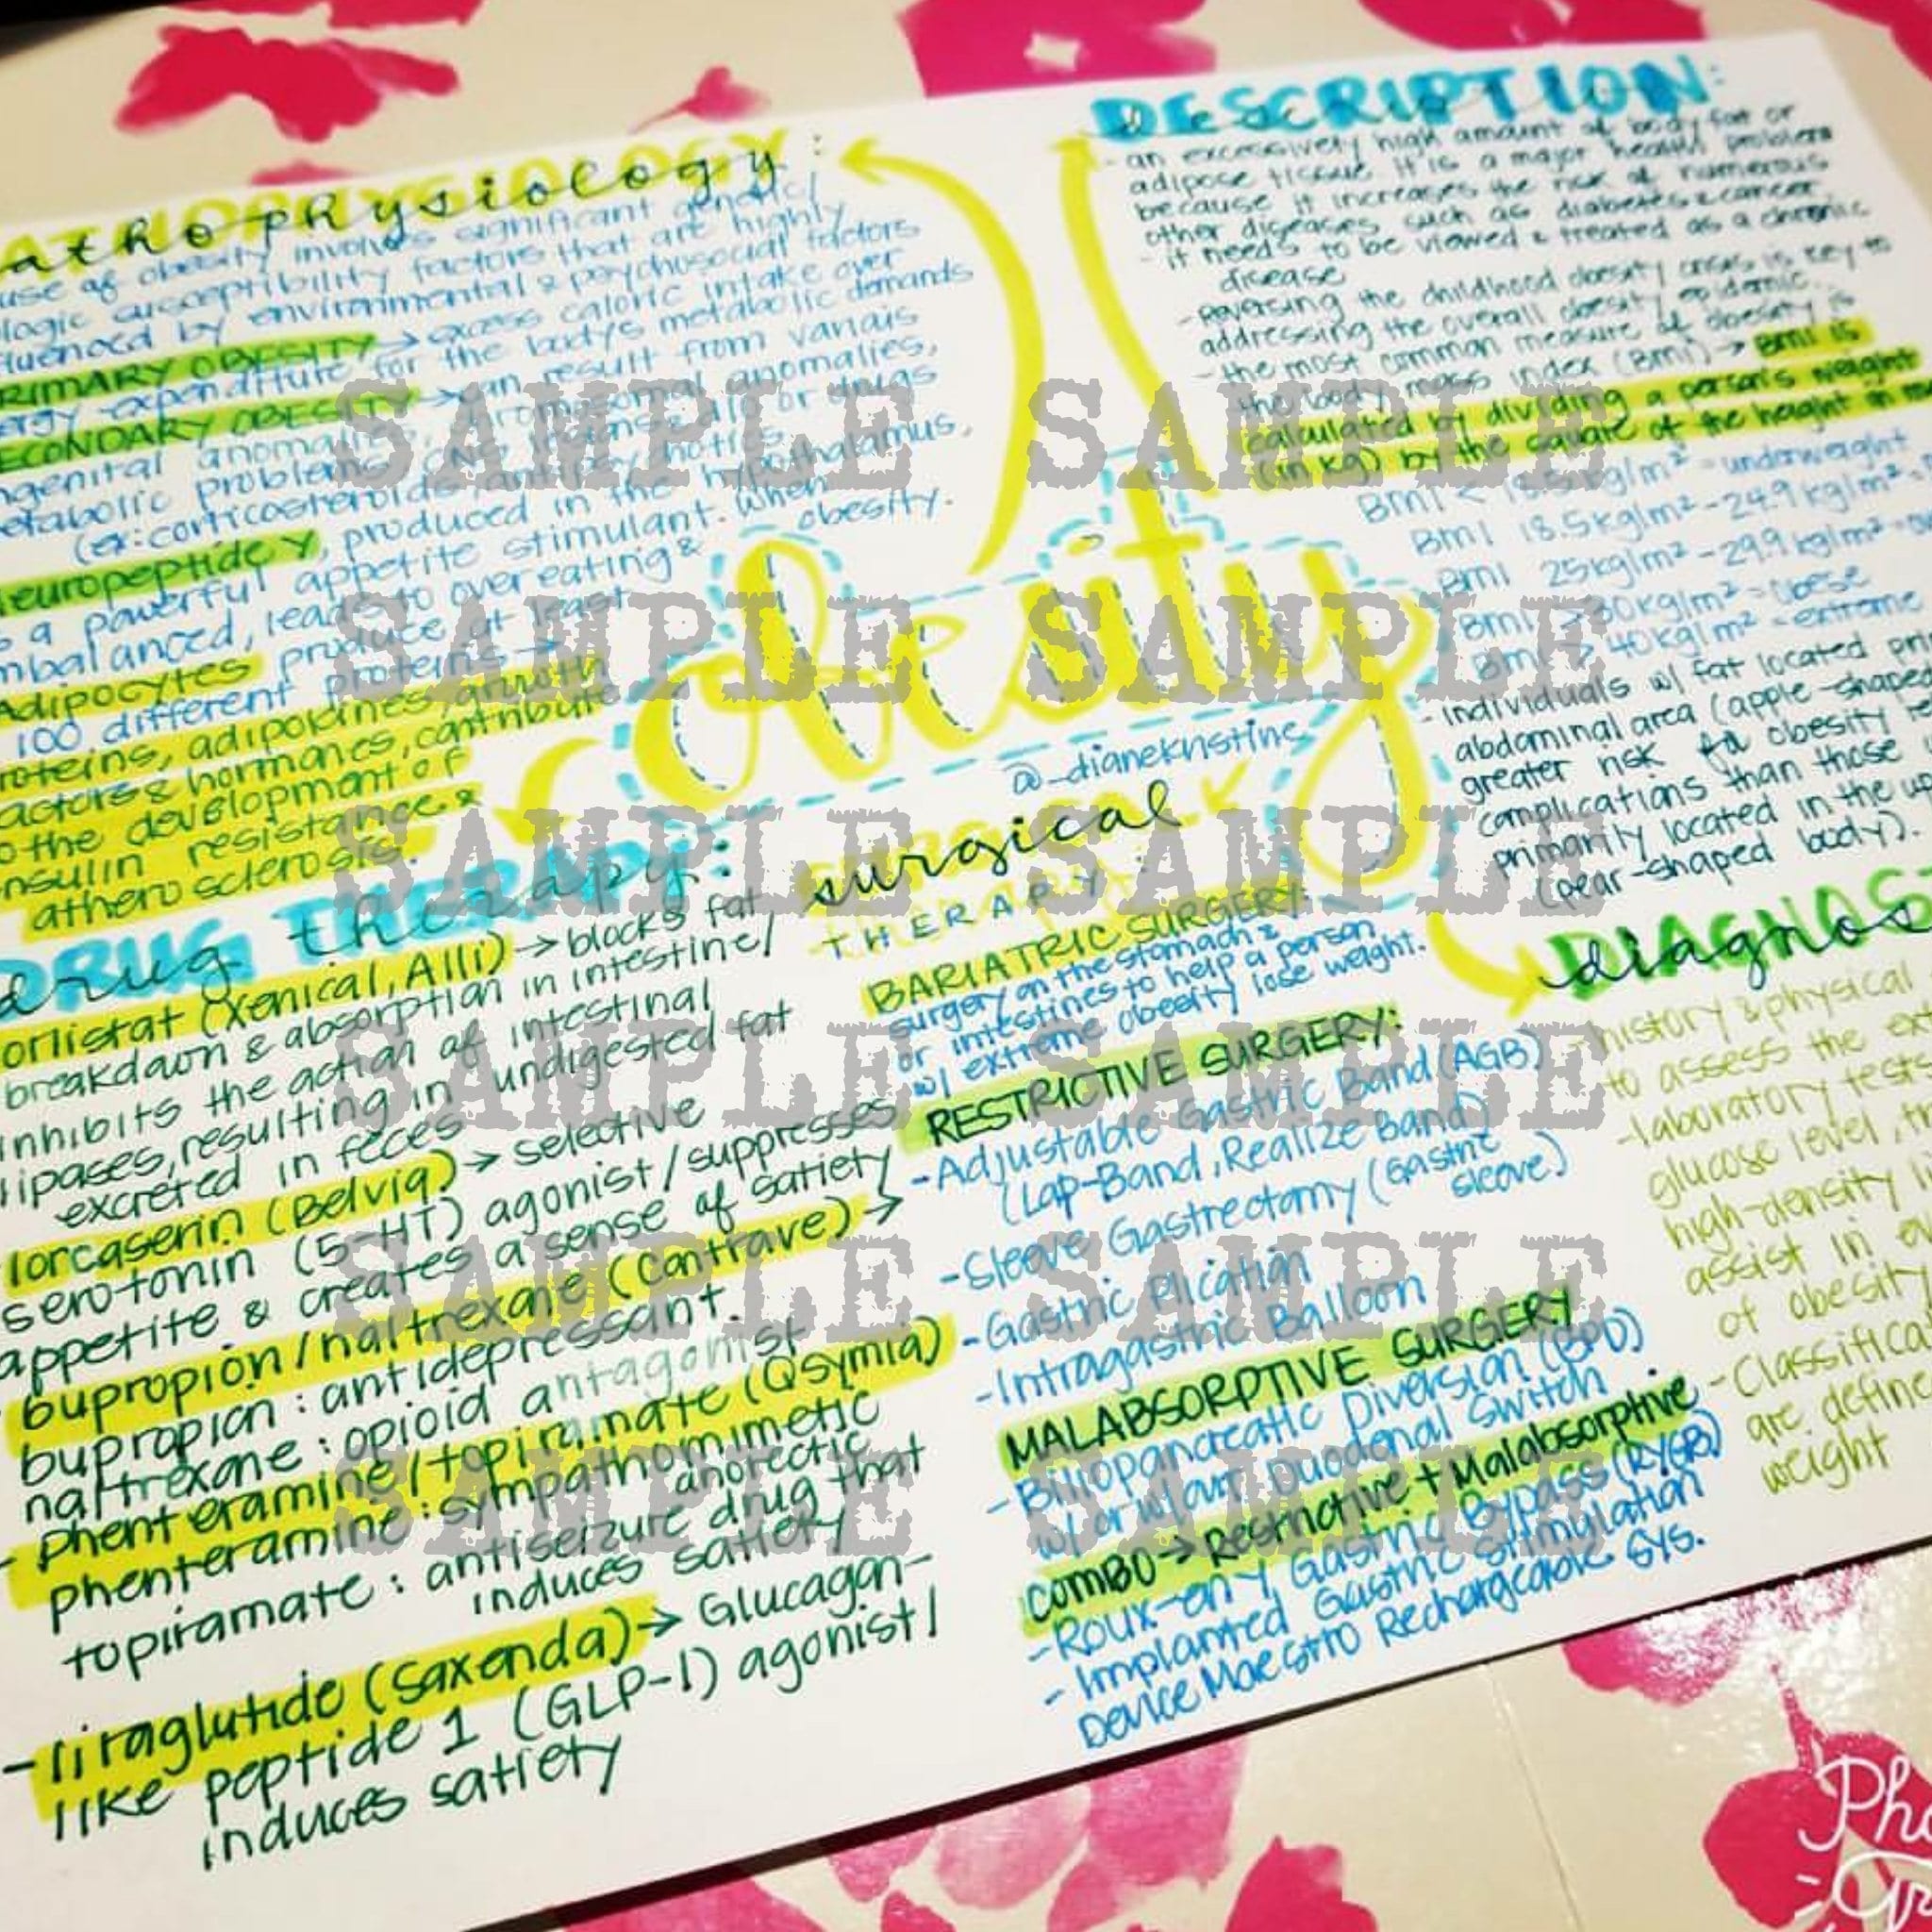 pathophysiology:
use of obesity involves significant genetic/
logic susceptibility factors that are highly
fluenced by environmental & psychosocial factors
PRIMARY OBESITY → excess caloric intake over
ergy expenditure for the body's metabolic demands
ECONDARY OBESITY → can result from various
ngenital anomalies, chromosomal anomalies,
etabolic problems, CNS lesions & dis or drugs
(ex: corticosteroids, antipsychotics
neuropeptide y, produced in the hypothalamus,
s a powerful appetite stimulant. When
mbalanced, leads to overeating & obesity.
Adipocytes produce at least
100 different proteins →
roteins, adipokines, growth
actors & hormones, contribute
o the development of
nsulin resistance &
atherosclerosis.
DESCRIPTION:
- an excessively high amount of body fat or
adipose tissue. It is a major health problem
because it increases the risk of numerous
other diseases such as diabetes & cancer
- it needs to be viewed & treated as a chronic
disease
- reversing the childhood obesity crisis is key to
addressing the overall obesity epidemic.
- the most common measure of obesity is
the body mass index (BMI) → BMI is
calculated by dividing a person's weight
(in kg) by the square of the height in m
BMI < 18.5 kg/m² = underweight
BMI 18.5kg/m² - 24.9 kg/m² =
BMI 25kg/m² - 29.9 kg/m² =
BMI > 30kg/m² = obese
BMI > 40kg/m² = extreme
- individuals w/ fat located pri
abdominal area (apple-shaped
greater risk for obesity
complications than those
primarily located in the
(pear-shaped body).
obesity
@_dianekristine
DRUG THERAPY:
drug therapy:
orlistat (Xenical, Alli) → blocks fat
breakdown & absorption in intestine/
inhibits the action of intestinal
lipases, resulting in undigested fat
excreted in feces
lorcaserin (Belviq) → selective
serotonin (5-HT) agonist/suppresses
appetite & creates a sense of satiety
bupropion/naltrexone (Contrave) →
bupropion: antidepressant.
naltrexone: opioid antagonist
- phenteramine/topiramate (Qsymia)
phenteramine: sympathomimetic
anorectic
topiramate: antiseizure drug that
induces satiety
- liraglutide (Saxenda) → Glucagon-
like peptide 1 (GLP-1) agonist/
induces satiety
surgical
THERAPY:
BARIATRIC SURGERY:
surgery on the stomach &
or intestines to help a person
w/ extreme obesity lose weight.
RESTRICTIVE SURGERY:
- Adjustable Gastric Band (AGB)
(Lap-Band, Realize Band)
- Sleeve Gastrectomy (Gastric
sleeve)
- Gastric Plication
- Intragastric Balloon
MALABSORPTIVE SURGERY
- Biliopancreatic Diversion (BPD)
w/ or w/out Duodenal Switch
COMBO → Restrictive + Malabsorptive
- Roux-en-Y Gastric Bypass (RYGB)
- Implanted Gastric Stimulation
Device Maestro Rechargeable Sys.
DIAGNOS
diagnos
- history & physical
to assess the ex
- laboratory tests
glucose level, t
high-density li
assist in
of obesity
- Classifica
are define
weight
SAMPLE SAMPLE
SAMPLE SAMPLE
SAMPLE SAMPLE
SAMPLE SAMPLE
SAMPLE SAMPLE
SAMPLE SAMPLE
Pho
Gr